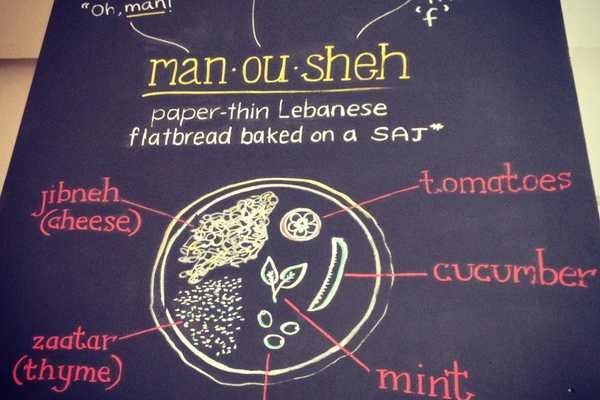 "Oh, man!
'f'
man·ou·sheh
paper-thin Lebanese
flatbread baked on a SAJ*
jibneh
(cheese)
tomatoes
cucumber
zaatar
(thyme)
mint